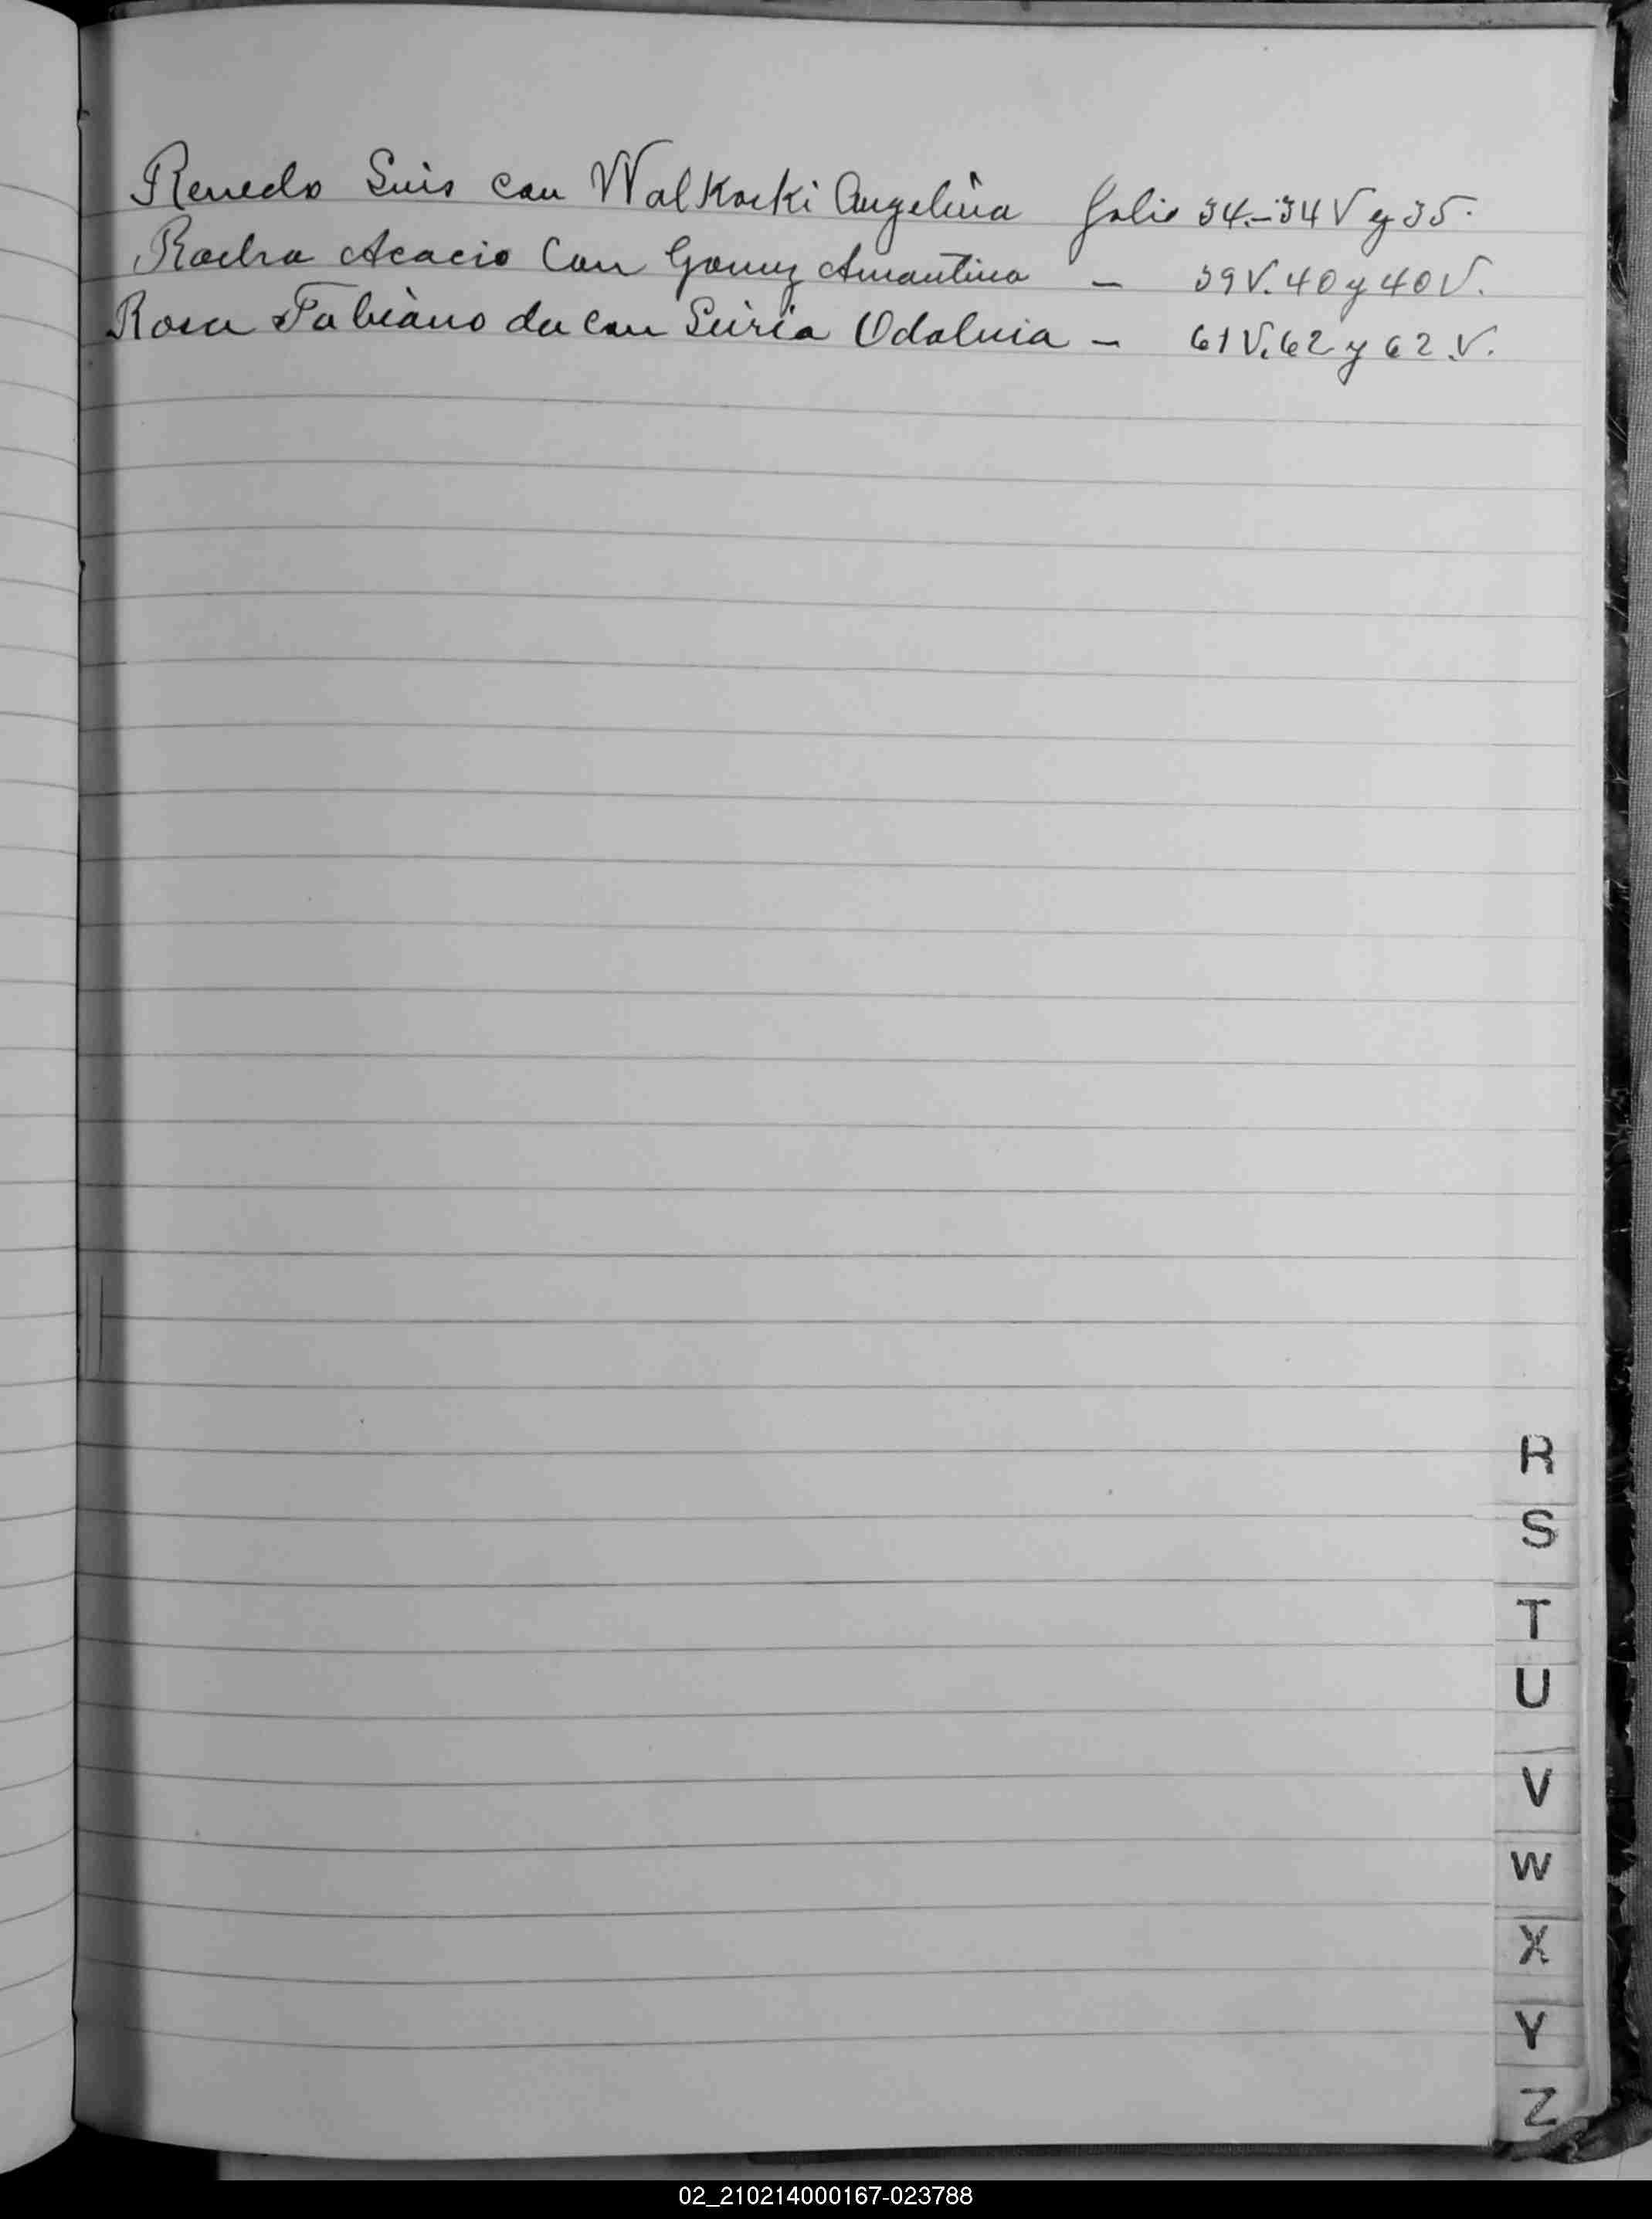 Renedo Luis con Walkoski Angelina folio 34.-34V y 35.
Rocha Acacio Con Gomez Amantina — 39V.40 y 40V.
Rosa Fabiano da con Odalnia — 61V.62 y 62.V.
R
S
T
U
V
W
X
Y
Z
02_210214000167-023788